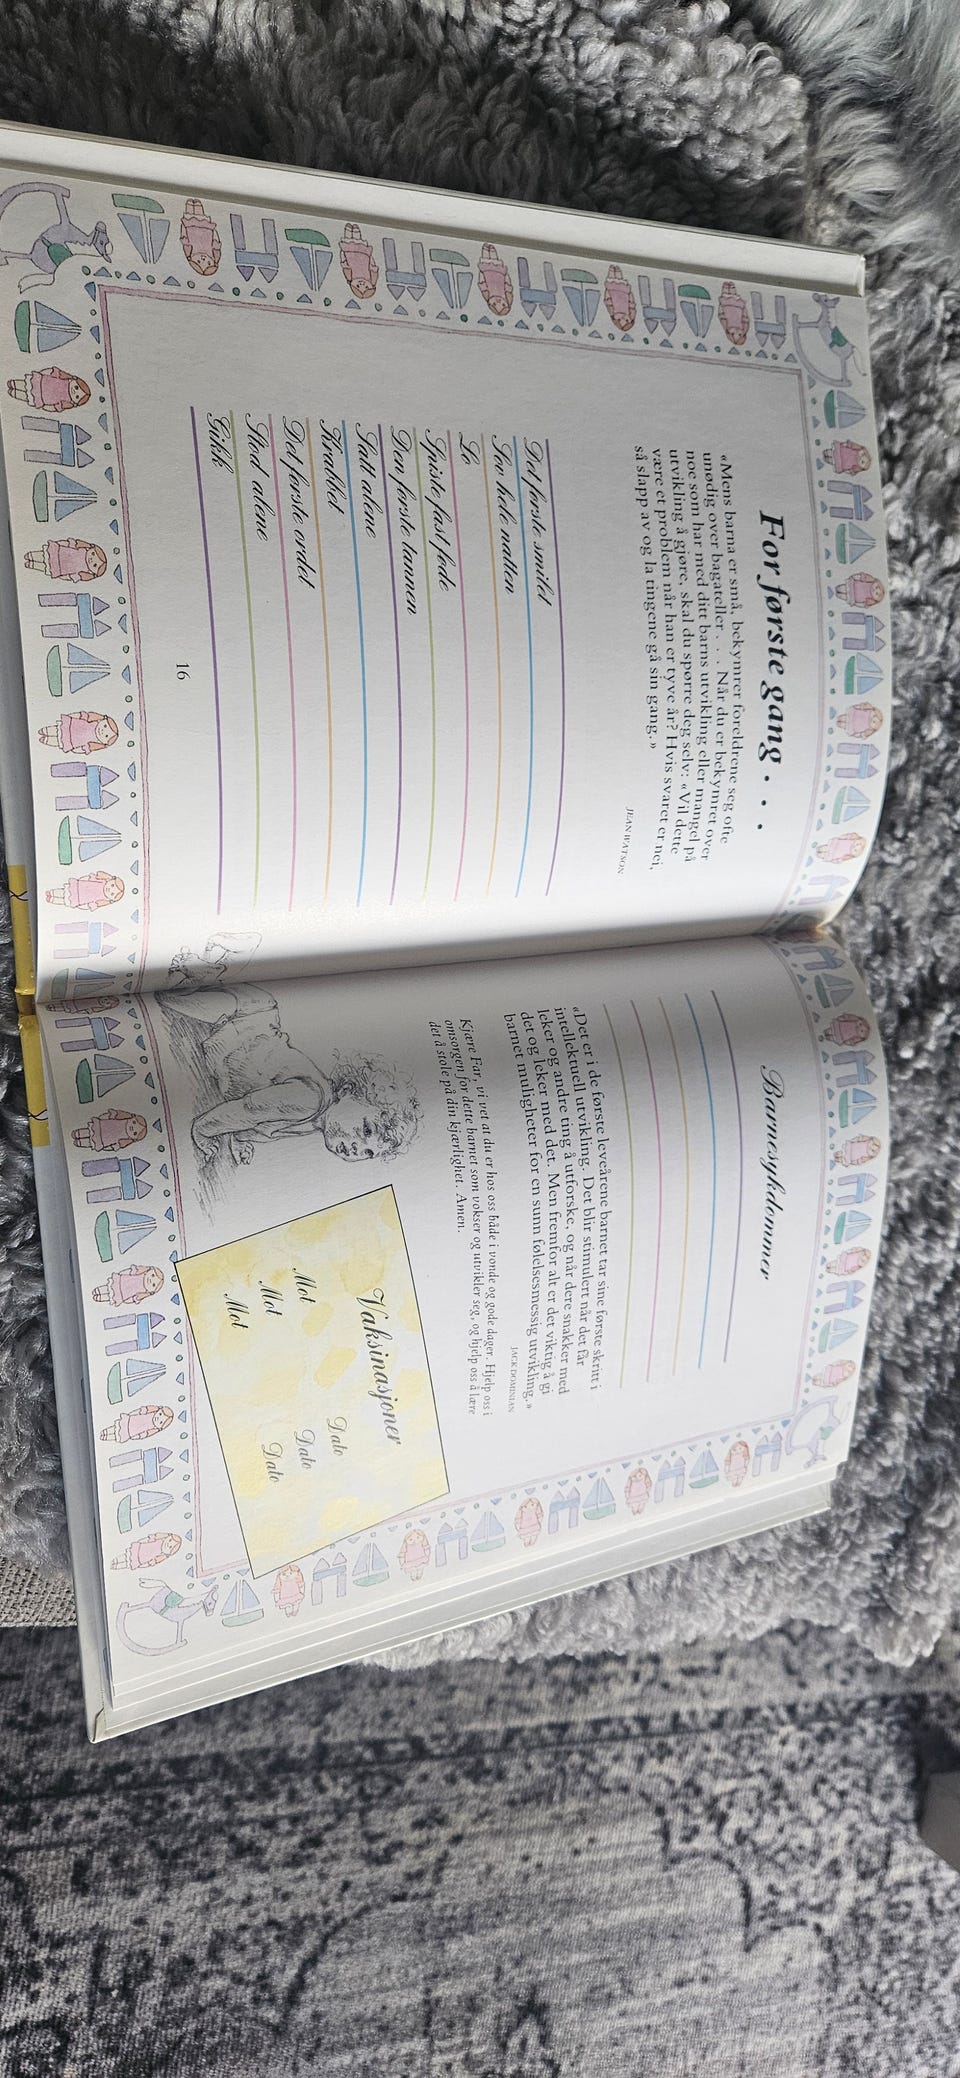 For første gang . . .
«Mens barna er små, bekymrer foreldrene seg ofte
unødig over bagateller . . . Når du er bekymret over
noe som har med ditt barns utvikling eller mangel på
utvikling å gjøre, skal du spørre deg selv: «Vil dette
være et problem når han er tyve år? Hvis svaret er nei,
så slapp av og la tingene gå sin gang.»
JEAN WATSON
Det første smilet
Sov hele natten
Lo
Spiste fast føde
Den første tannen
Satt alene
Krabbet
Det første ordet
Stod alene
Gikk
16
Barnesykdommer
«Det er i de første leveårene barnet tar sine første skritt i
intellektuell utvikling. Det blir stimulert når det får
leker og andre ting å utforske, og når dere snakker med
det og leker med det. Men fremfor alt er det viktig å gi
barnet muligheter for en sunn følelsesmessig utvikling.»
JACK DOMINIAN
Kjære Far, vi vet at du er hos oss både i vonde og gode dager. Hjelp oss i
omsorgen for dette barnet som vokser og utvikler seg, og hjelp oss å lære
det å stole på din kjærlighet. Amen.
Vaksinasjoner
Mot Dato
Mot Dato
Mot Dato